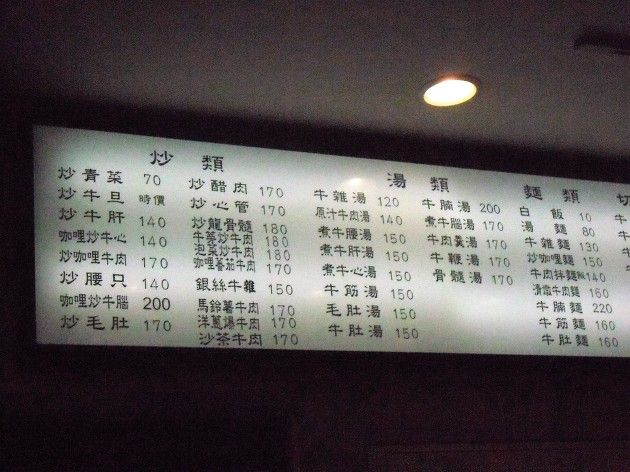 炒類
炒青菜 70
炒牛旦 時價
炒牛肝 140
咖哩炒牛心 140
咖哩炒牛肉 170
炒腰只 140
咖哩炒牛腦 200
炒毛肚 170
炒醋肉 170
炒心管 170
炒龍骨髓 180
牛蒡炒牛肉 180
泡菜炒牛肉 180
咖哩蕃茄牛肉 170
銀絲牛雜 150
馬鈴薯牛肉 170
洋蔥爆牛肉 170
沙茶牛肉 170
湯類
牛雜湯 120
原汁牛肉湯 140
煮牛腰湯 150
煮牛肝湯 150
煮牛心湯 150
牛筋湯 150
毛肚湯 150
牛肚湯 150
牛腩湯 200
煮牛腦湯 170
牛肉羹湯 170
牛鞭湯 170
骨髓湯 170
麵類
白飯 10
湯麵 80
牛雜麵 130
炒咖哩麵 150
牛肉拌麵 140
清燉牛肉麵 160
牛腩麵 220
牛筋麵 160
牛肚麵 160
切